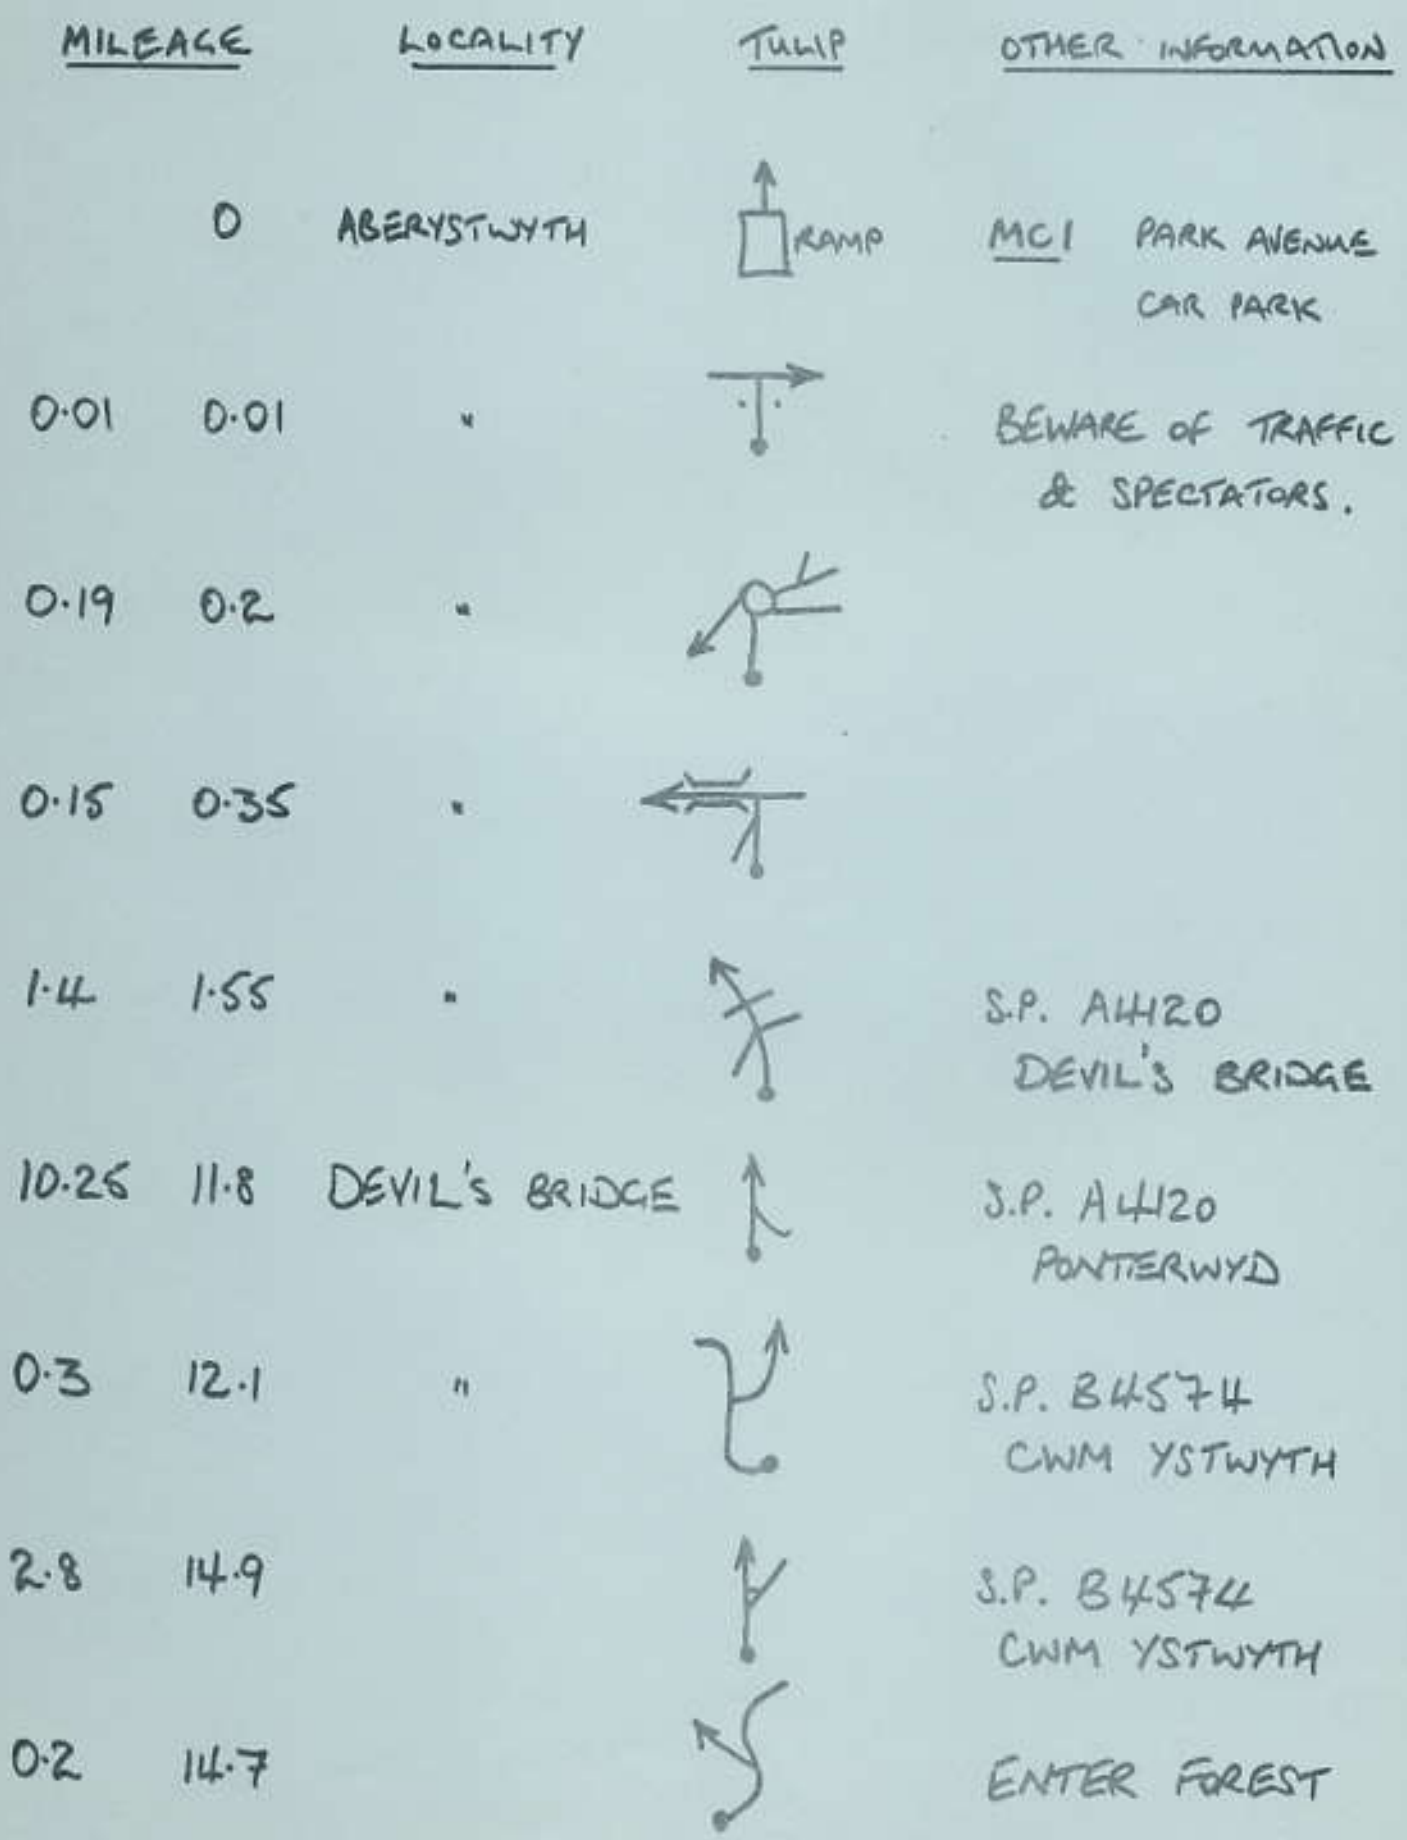 MILEAGE LOCALITY TULIP OTHER INFORMATION
0 ABERYSTWYTH RAMP MC1 PARK AVENUE
CAR PARK
0.01 0.01 " BEWARE OF TRAFFIC
& SPECTATORS.
0.19 0.2 "
0.15 0.35 "
1.4 1.55 " S.P. A4120
DEVIL'S BRIDGE
10.25 11.8 DEVIL'S BRIDGE S.P. A4120
PONTERWYD
0.3 12.1 " S.P. B4574
CWM YSTWYTH
2.8 14.9 S.P. B4574
CWM YSTWYTH
0.2 14.7 ENTER FOREST